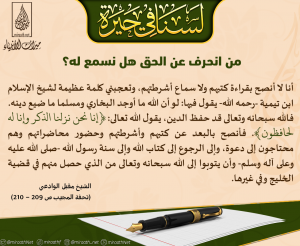 لسنا في حيرة
ميراث الأنبياء
من انحرف عن الحق هل نسمع له؟
أنا لا أنصح بقراءة كتبهم ولا سماع أشرطتهم، وتعجبني كلمة عظيمة لشيخ الإسلام
ابن تيمية -رحمه الله- يقول فيها: لو أن الله ما أوجد البخاري ومسلما ما ضيع دينه.
فالله سبحانه وتعالى قد حفظ الدين، يقول الله تعالى: ﴿إنا نحن نزلنا الذكر وإنا له
لحافظون﴾، فأنصح بالبعد عن كتبهم وأشرطتهم وحضور محاضراتهم وهم
محتاجون إلى دعوة، وإلى الرجوع إلى كتاب الله وإلى سنة رسول الله -صلى الله عليه
وعلى آله وسلم- وأن يتوبوا إلى الله سبحانه وتعالى من الذي حصل منهم في قضية
الخليج وفي غيرها.
الشيخ مقبل الوادعي
(تحفة المجيب ص 209 – 210)